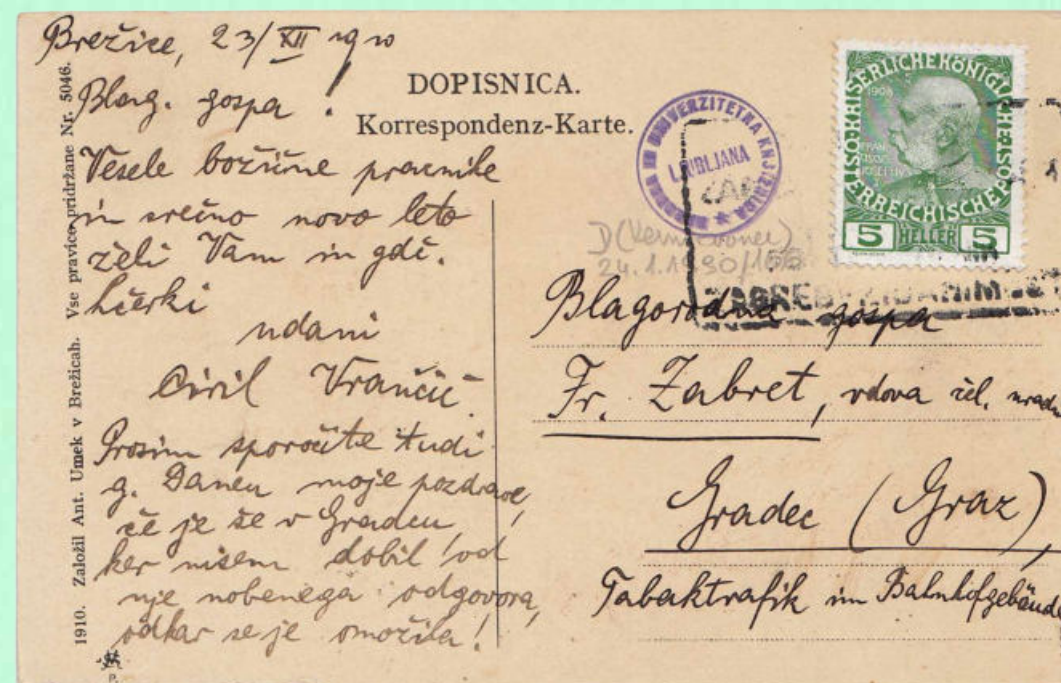 Brežice, 23/XII 1910
Blag. gospa!
Vesele božične praznike
in srečno novo leto
želi Vam in gdč.
hčerki
udani
Ciril Vrančič
Prosim sporočite tudi
g. Daneu moje pozdrave,
če je še v Gradcu,
ker nisem dobil od
nje nobenega odgovora,
odkar se je omožila!
1910. Založil Ant. Umek v Brežicah. Vse pravice pridržane Nr. 5046.
DOPISNICA.
Korrespondenz-Karte.
NARODNA IN UNIVERZITETNA KNJIŽNICA
LJUBLJANA
24.1.1990/155
KAISERLICHE KÖNIGLICHE ÖSTERREICHISCHE POST
1908
5 HELLER 5
ZAGREB
Blagorodna gospa
Fr. Zabret, vdova žel.
Gradec (Graz),
Tabaktrafik im Bahnhofgebäude